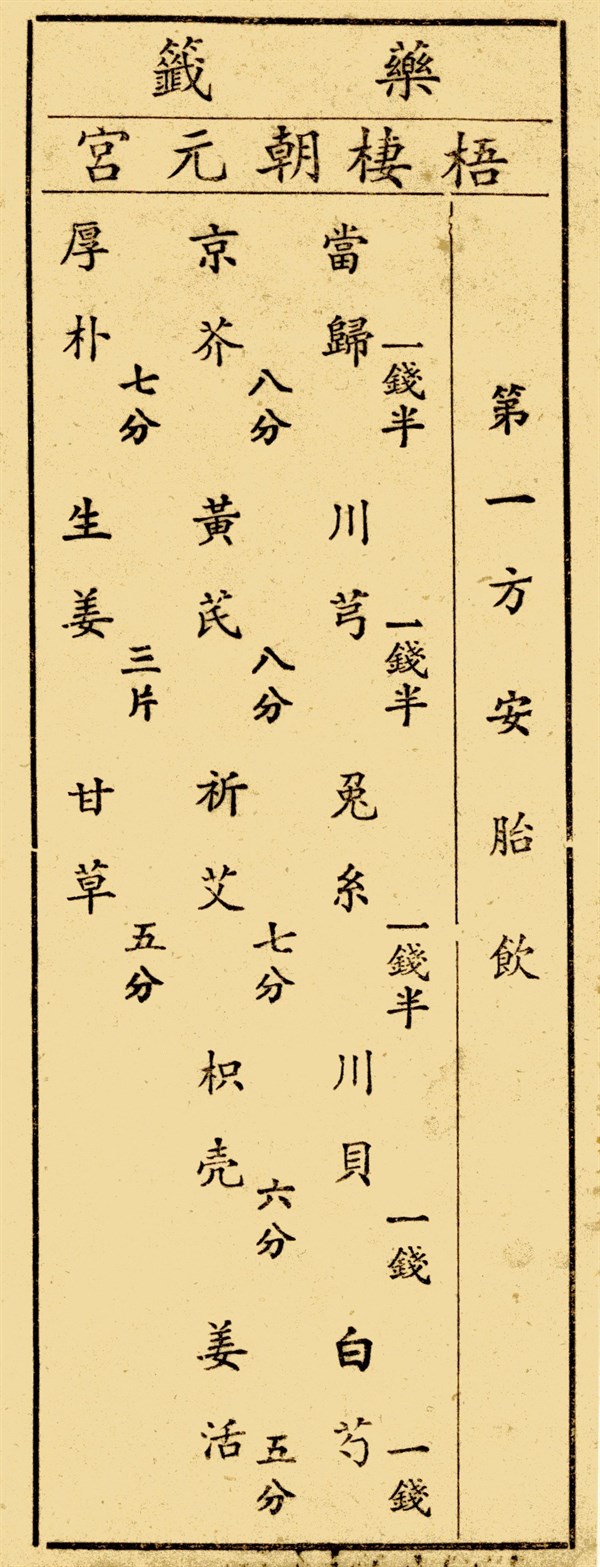 藥籤
梧棲朝元宮
第一方安胎飲
當歸一錢半川芎一錢半兎糸一錢半川貝一錢白芍一錢
京芥八分黃芪八分祈艾七分枳壳六分姜活五分
厚朴七分生姜三片甘草五分